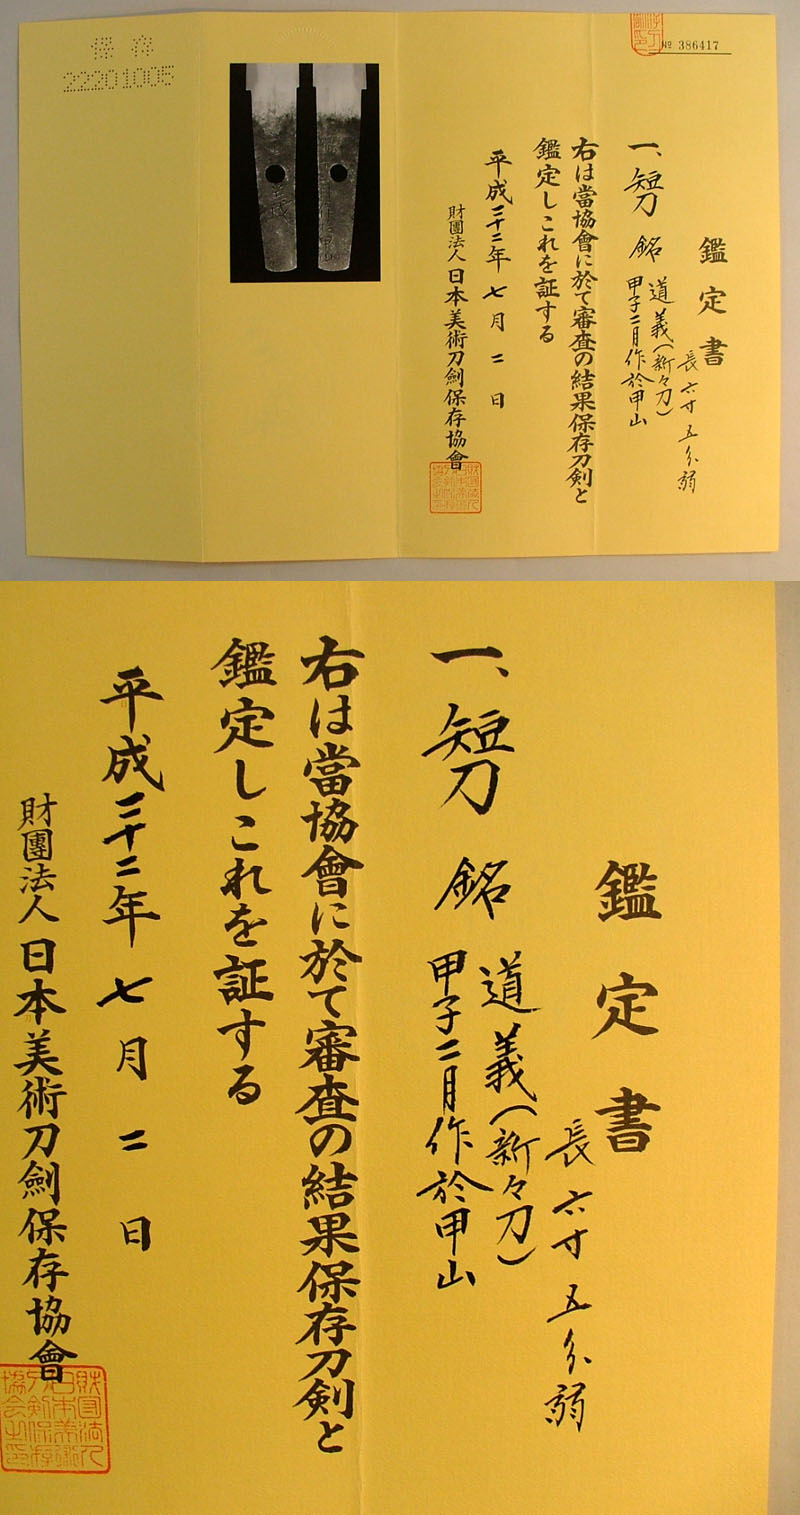 保存
22201005
№ 386417
鑑定書
一、短刀 銘 道義(新々刀)
甲子二月作於甲山
長六寸五分弱
右は當協會に於て審査の結果保存刀剣と
鑑定しこれを証する
平成二十二年七月二日
財團法人日本美術刀劍保存協會
鑑定書
長六寸五分弱
一、短刀 銘 道義(新々刀)
甲子二月作於甲山
右は當協會に於て審査の結果保存刀剣と
鑑定しこれを証する
平成二十二年七月二日
財團法人日本美術刀劍保存協會